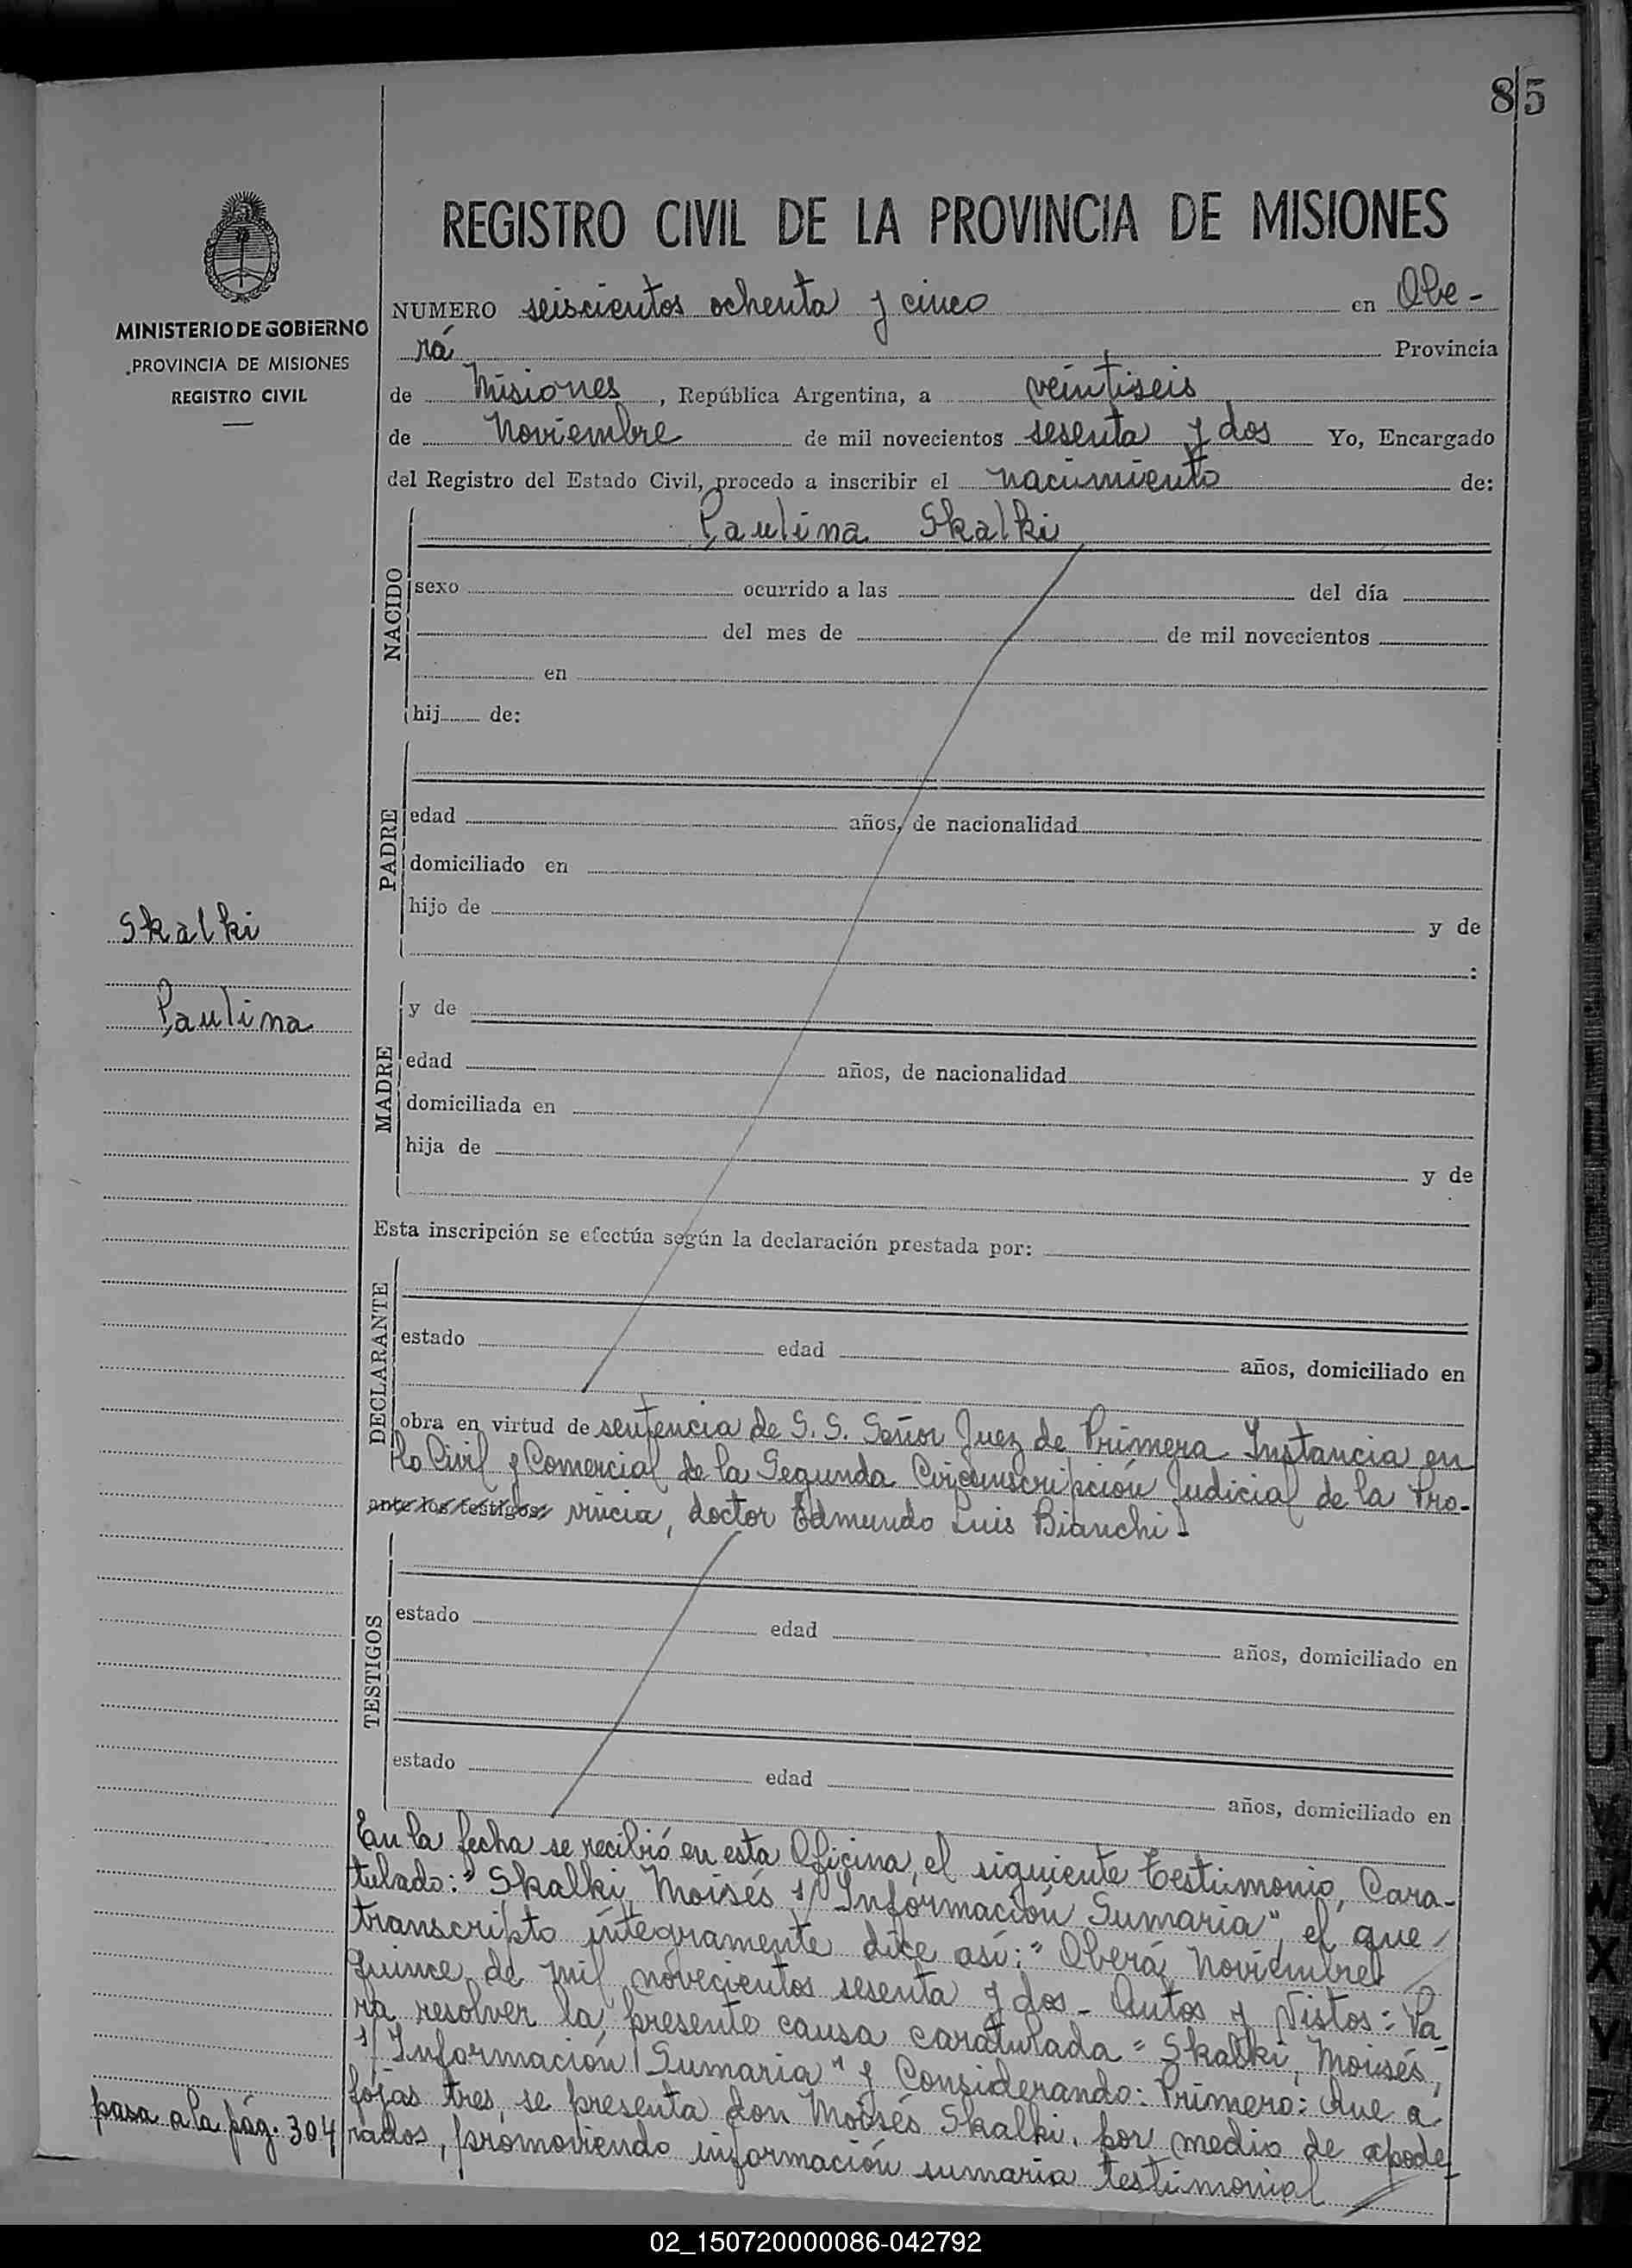 85
REGISTRO CIVIL DE LA PROVINCIA DE MISIONES
MINISTERIO DE GOBIERNO
PROVINCIA DE MISIONES
REGISTRO CIVIL
NUMERO seiscientos ochenta y cinco en Obe-
rá Provincia
de Misiones, República Argentina, a veintiseis
de Noviembre de mil novecientos sesenta y dos Yo, Encargado
del Registro del Estado Civil, procedo a inscribir el nacimiento de:
Paulina Skalki
NACIDO
sexo ocurrido a las del día
del mes de de mil novecientos
en
hij de:
PADRE
edad años, de nacionalidad
domiciliado en
hijo de y de
:
Skalki
Paulina
MADRE
y de
edad años, de nacionalidad
domiciliada en
hija de y de
Esta inscripción se efectúa según la declaración prestada por:
DECLARANTE
estado edad años, domiciliado en
obra en virtud de sentencia de S. S. Señor Juez de Primera Instancia en
lo Civil y Comercial de la Segunda Circunscripción Judicial de la Pro-
ante los testigos: vincia, doctor Edmundo Luis Bianchi-
TESTIGOS
estado edad años, domiciliado en
estado edad años, domiciliado en
En la fecha se recibió en esta Oficina, el siguiente testimonio, Cara-
tulado: "Skalki, Moisés s/ Información Sumaria", el que
transcripto íntegramente dice así: "Oberá, Noviembre
quince de mil novecientos sesenta y dos- Autos y Vistos: Pa-
ra resolver la presente causa caratulada "Skalki, Moisés,
s/ Información Sumaria" y Considerando: Primero: Que a
fojas tres, se presenta don Moisés Skalki, por medio de apode-
rados, promoviendo información sumaria testimonial
pasa a la pág. 304
02_150720000086-042792